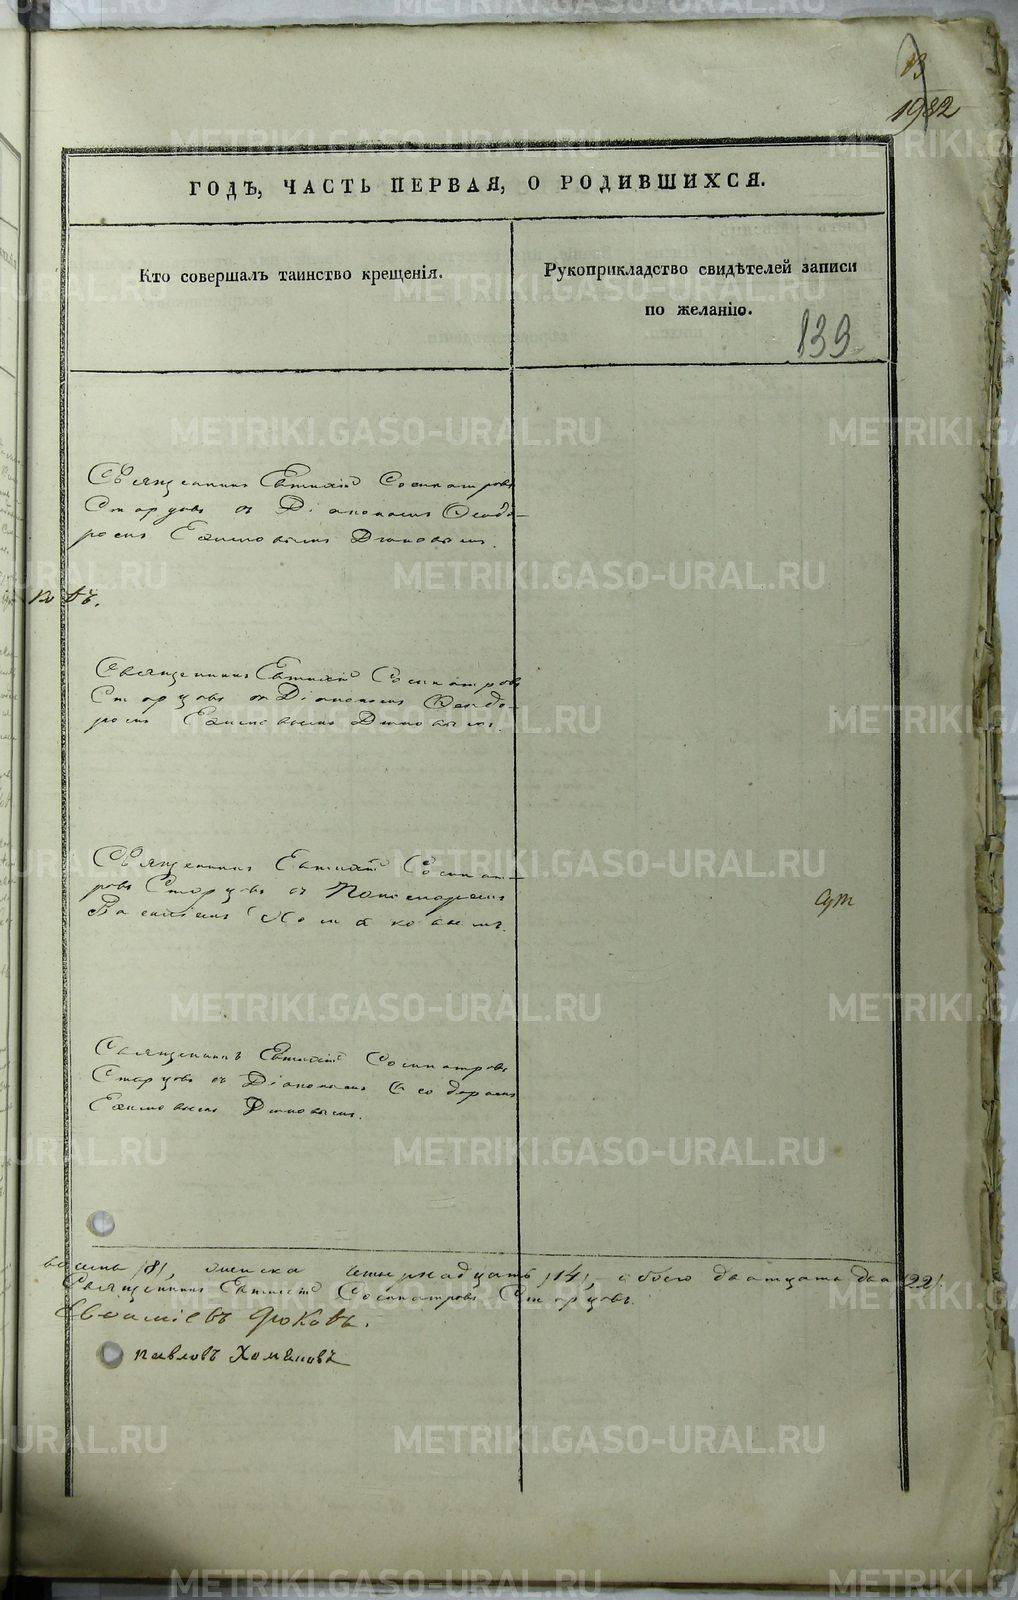 13
1982
ГОДЪ, ЧАСТЬ ПЕРВАЯ, О РОДИВШИХСЯ.
Кто совершалъ таинство крещенія.
Рукоприкладство свидѣтелей записи
по желанію.
139
Священникъ Евтихій Сосипатровъ
Старцовъ съ Діакономъ Ѳеодо-
ромъ Екимовымъ Дюковымъ.
Священникъ Евтихій Сосипатровъ
Старцовъ съ Діакономъ Ѳеодо-
ромъ Екимовымъ Дюковымъ.
Священникъ Евтихій Сосипат-
ровъ Старцовъ съ Пономаремъ
Василіемъ Хомяковымъ.
Священникъ Евтихій Сосипатровъ
Старцовъ съ Діакономъ Ѳеодоромъ
Екимовымъ Дюковымъ.
восемь /8/, женска четырнадцать /14/, обоего двадцать два /22/.
Священникъ Евтихій Сосипатровъ Старцовъ.
Дюковъ.
павловъ Хомяковъ
METRIKI.GASO-URAL.RU